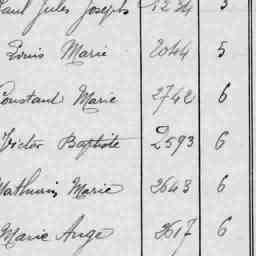 Paul Jules Joseph 1234 5
Louis Marie 2044 5
Constant Marie 2742 6
Victor Baptiste 2593 6
Mathurin Marie 2643 6
Marie Ange 2617 6